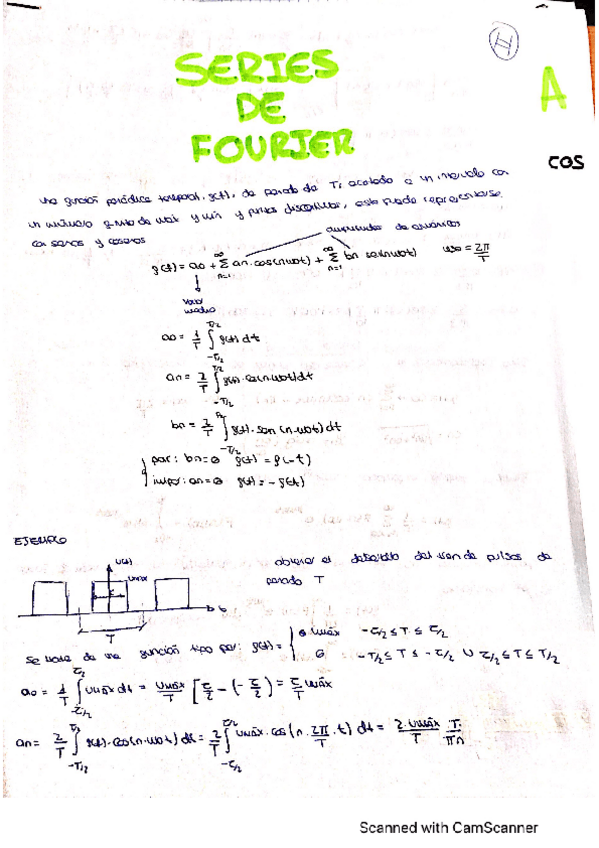 SERIES
DE
FOURIER
A
cos
una función periódica temporal, g(t), de periodo de T, acotada a un intervalo con
un número finito de máx y mín y puntos discontinuos, esta puede representarse
con senos y cosenos
amplitudes de armónicos
g(t) = ao + ∞Σn=1 an.cos(nωot) + ∞Σn=1 bn sen(nωot) ωo = 2π/T
valor
medio
ao = 1/T ∫-T/2^T/2 g(t) dt
an = 2/T ∫-T/2^T/2 g(t).cos(n.ωot)dt
bn = 2/T ∫-T/2^T/2 g(t).sen(n.ωot)dt
par: bn=0 g(t) = g(-t)
impar: an=0 g(t) = -g(t)
EJEMPLO
obtener el desarrollo del tren de pulsos de
periodo T
u(t)
Umáx
τ
t
T
se trata de una función tipo par: g(t) = { Umáx -τ/2 ≤ T ≤ τ/2
0 -T/2 ≤ T ≤ -τ/2 U τ/2 ≤ T ≤ T/2
ao = 1/T ∫-τ/2^τ/2 Umáx dt = Umáx/T [τ/2 - (-τ/2) = τ/T Umáx
an = 2/T ∫-T/2^T/2 g(t).cos(n.ωot) dt = 2/T ∫-τ/2^τ/2 Umáx.cos(n.2π/T.t) dt = 2.Umáx/T T/πn
Scanned with CamScanner